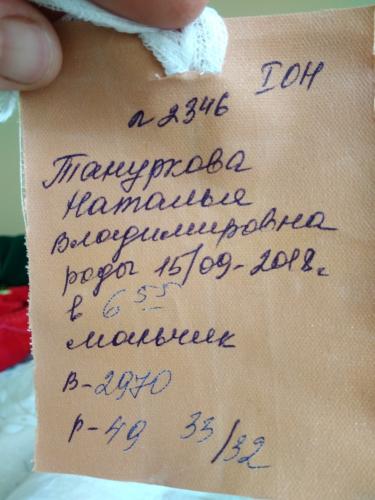 I ОН
л 2346
Тануркова
Наталья
Владимировна
роды 15/09-2018г.
в 6 55
мальчик
в-2970
р-49 33/32